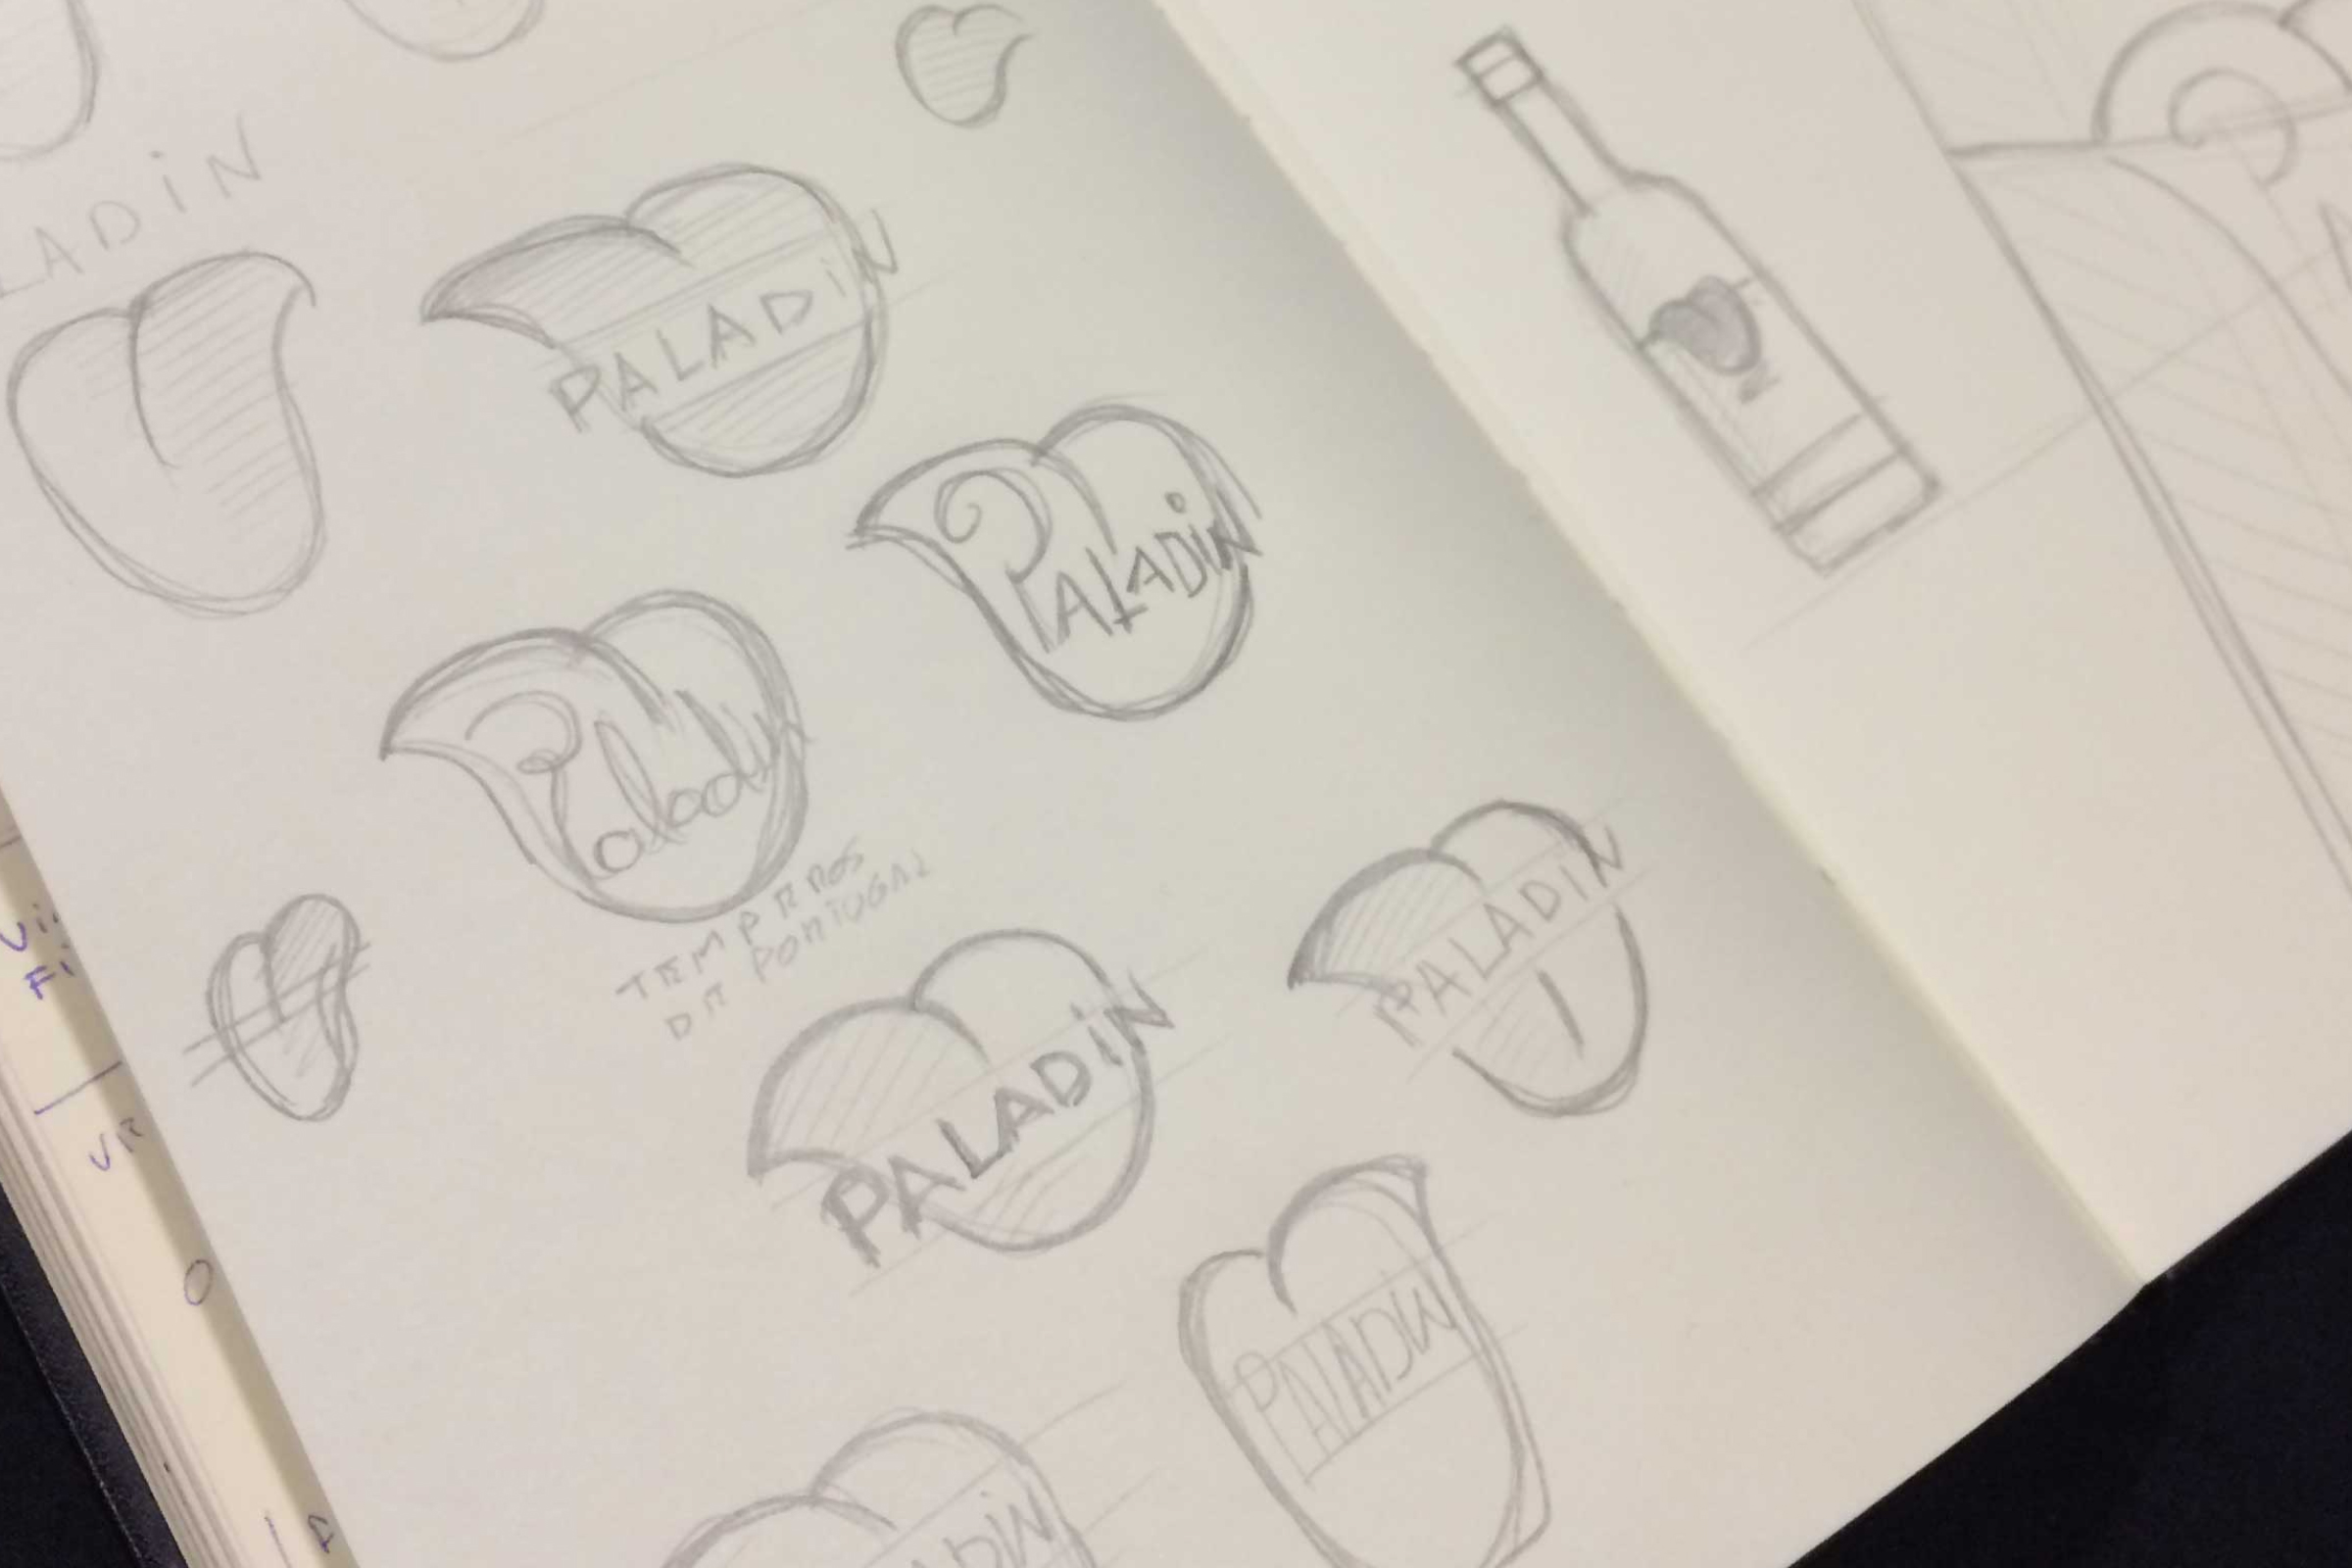 LADiN
PALADiN
PALADiN
Paladin
TEMPEROS
DE PORTUGAL
PALADIN
PALADiN
PALADiN
ADiN
UR
O